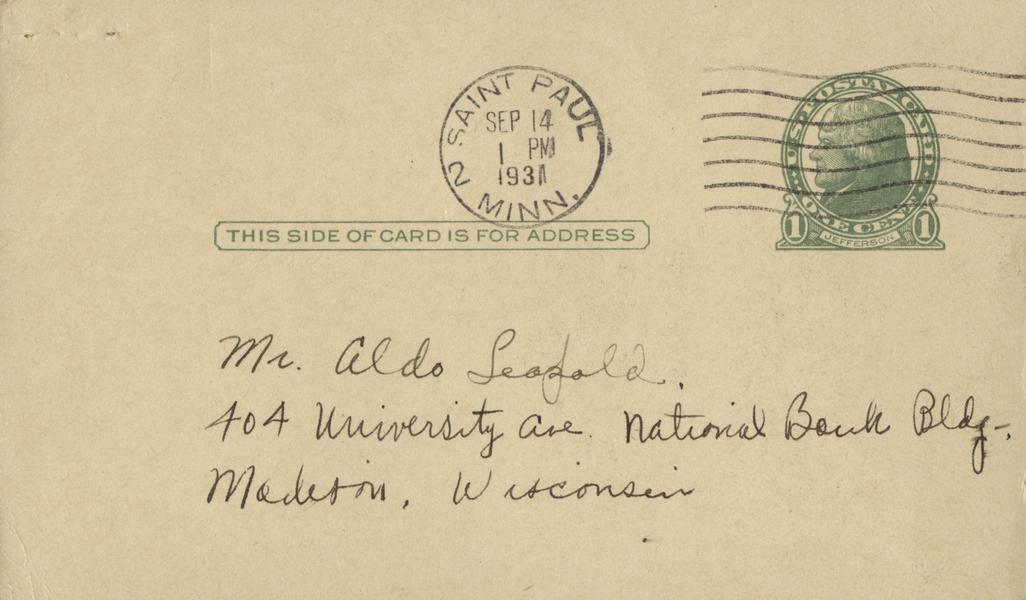 SAINT PAUL
SEP 14
1 PM
1931
2 MINN.
U.S. POSTAL CARD
ONE CENT
1 JEFFERSON 1
THIS SIDE OF CARD IS FOR ADDRESS
Mr. Aldo Leopold.
404 University Ave. National Bank Bldg.
Madison, Wisconsin